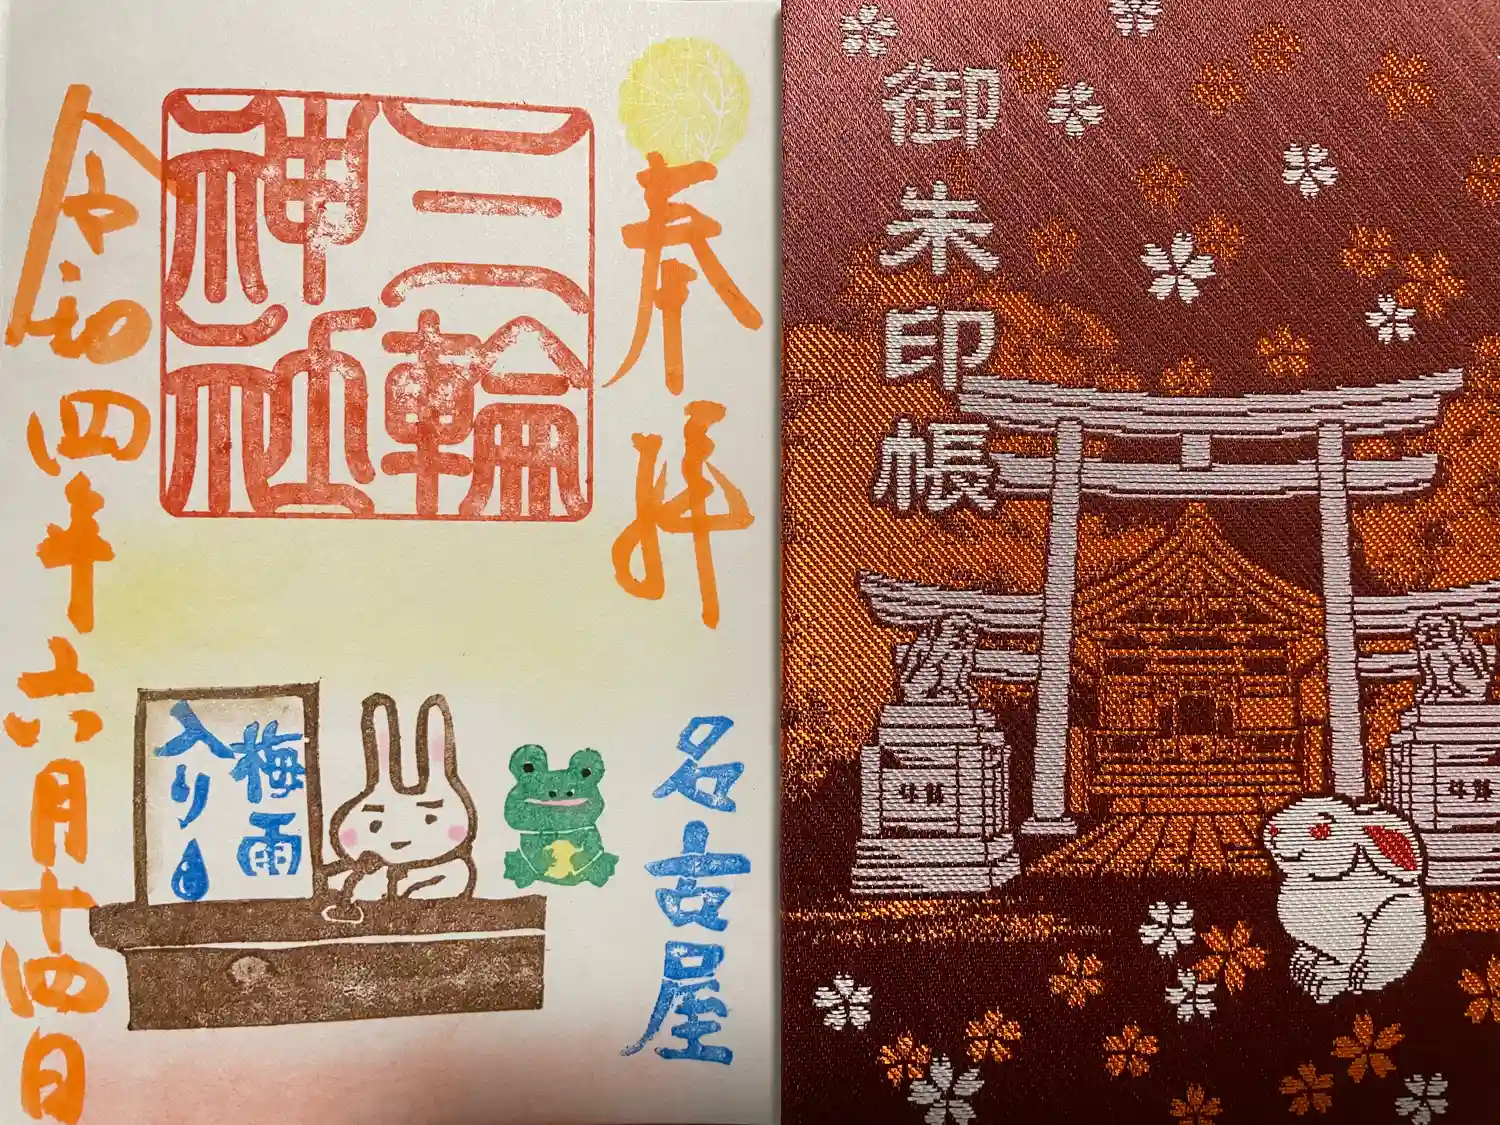 奉拝
三輪
神社
令和四年六月十四日
名古屋
梅雨
入り
御朱印帳